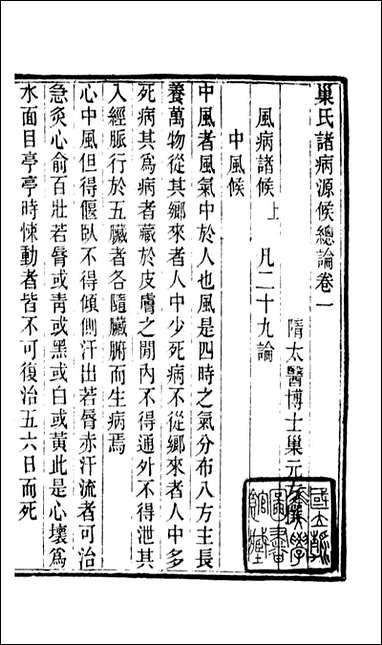 巢氏諸病源候總論卷一
隋太醫博士巢元方
風病諸候上　凡二十九論
中風候
中風者風氣中於人也風是四時之氣分布八方主長
養萬物從其鄉來者人中少死病不從鄉來者人中多
死病其為病者藏於皮膚之閒內不得通外不得泄其
入經脈行於五臟者各隨臟腑而生病焉
心中風但得偃臥不得傾側汗出若脣赤汗流者可治
急灸心俞百壯若脣或青或黑或白或黃此是心壞為
水面目亭亭時悚動者皆不可復治五六日而死